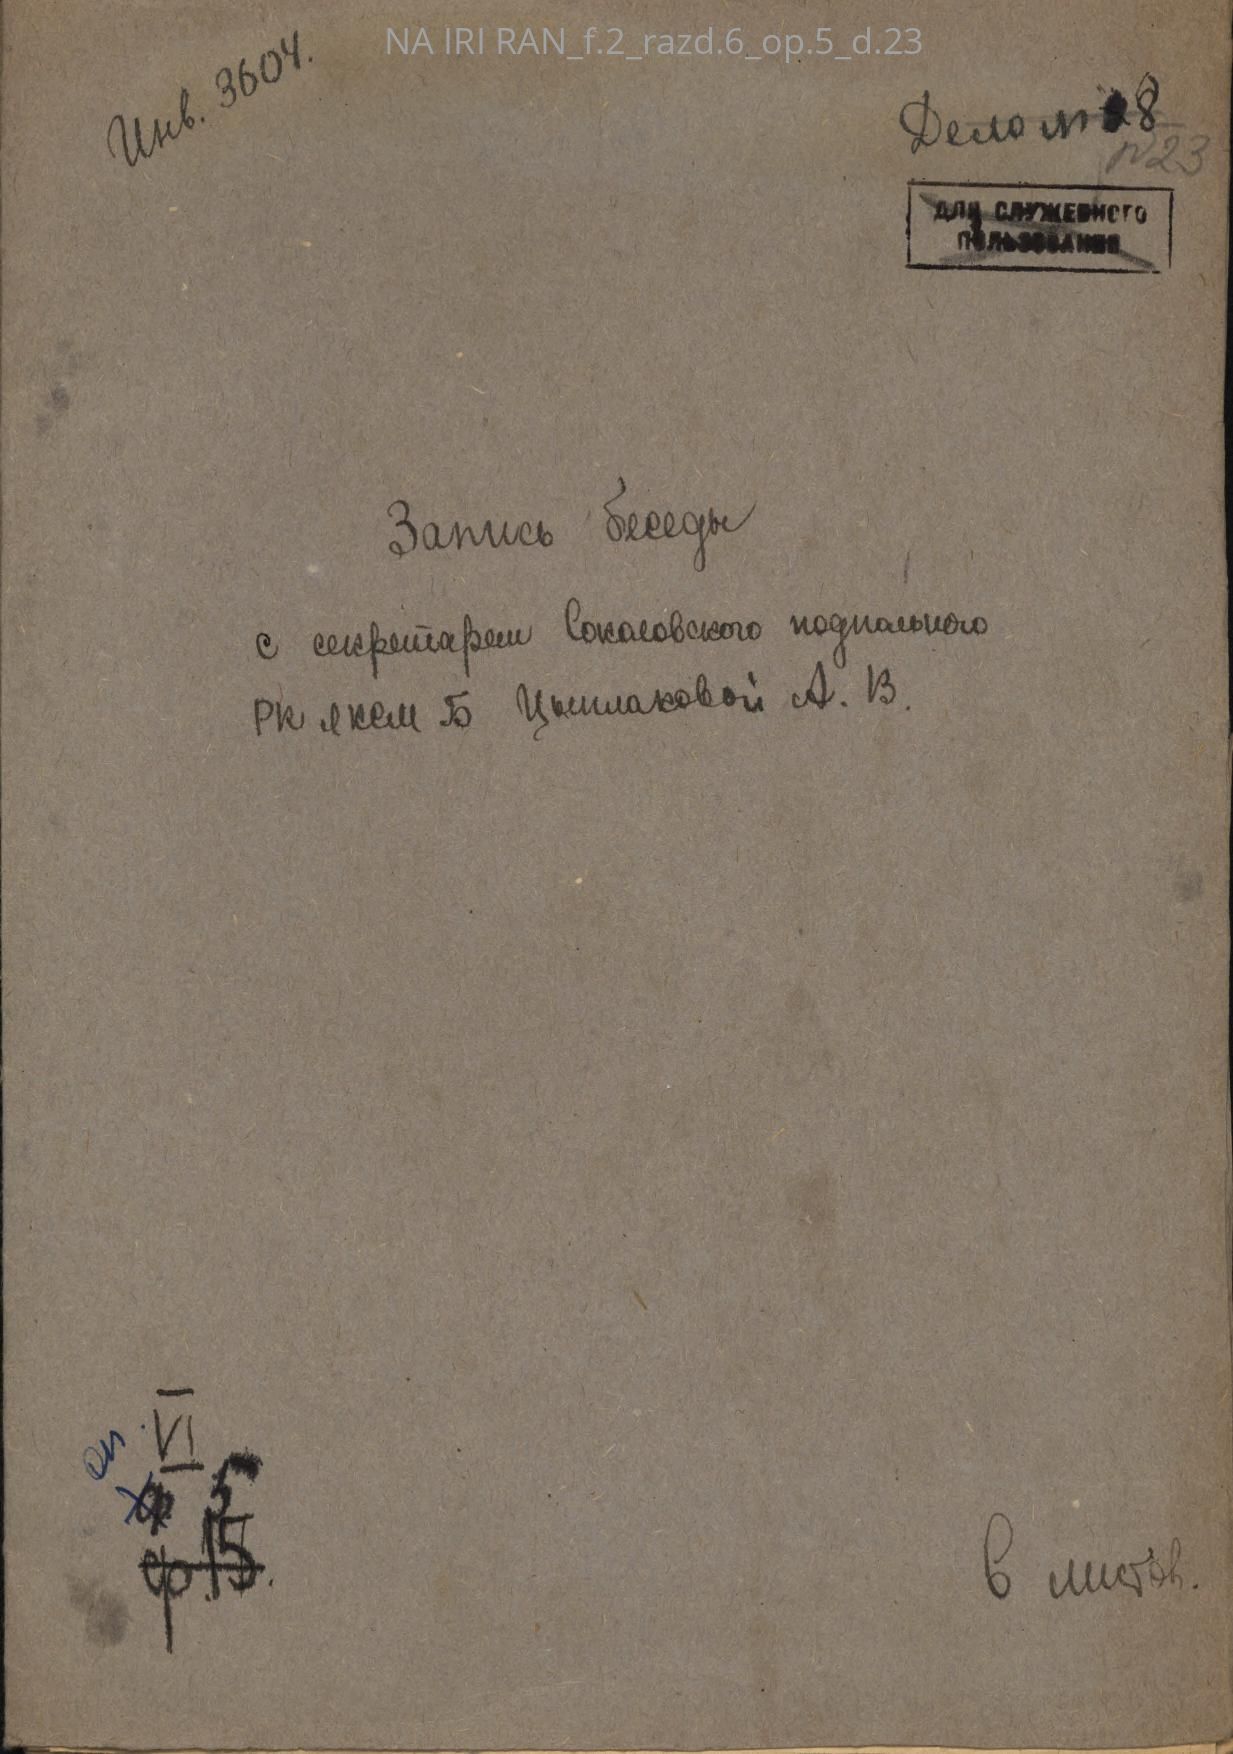 NA IRI RAN_f.2_razd.6_op.5_d.23
Инв. 3604.
Дело №28
№23
ДЛЯ СЛУЖЕБНОГО
ПОЛЬЗОВАНИЯ
Запись беседы
с секретарем Сокаловского подпольного
РК ЛКСМ Б Цымлаковой А. В.
оп. VI
5
ф.15.
6 листов.